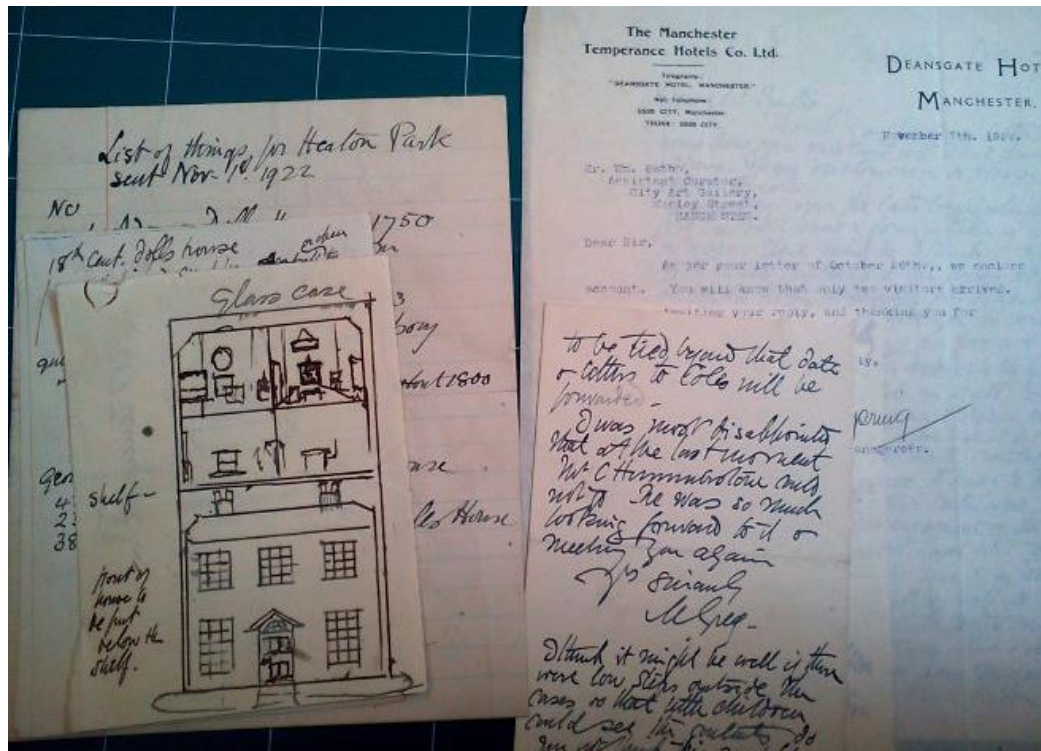 List of things for Heaton Park
sent Nov. 1st. 1922
No
1750
18th Cent. Dolls house
open
3
about 1800
Geor
4
2
38
House
Glass case
Shelf -
front of
house to
be put
below the
shelf.
The Manchester
Temperance Hotels Co. Ltd.
Telegrams:
"DEANSGATE HOTEL, MANCHESTER."
Nat: Telephone:
5538 CITY, Manchester
TRUNK: CITY
DEANSGATE HOT
MANCHESTER.
November 7th.
Mr. Wm.
Assistant Curator,
City Art Gallery,
Mosley Street,
MANCHESTER.
Dear Sir,
As per your letter of October we enclose
account. You will know that only two visitors arrived.
Awaiting your reply, and thanking you for
ly.
Manageress.
to be tied beyond that date
& letters to Coles will be
forwarded -
I was most disappointed
that at the last moment
Mr C could
not go he was so much
looking forward to it &
meeting you again
Yrs sincerely
M Greg -
I think it might be well if there
were low steps outside the
cases so that little children
could see the contents. Do
you not